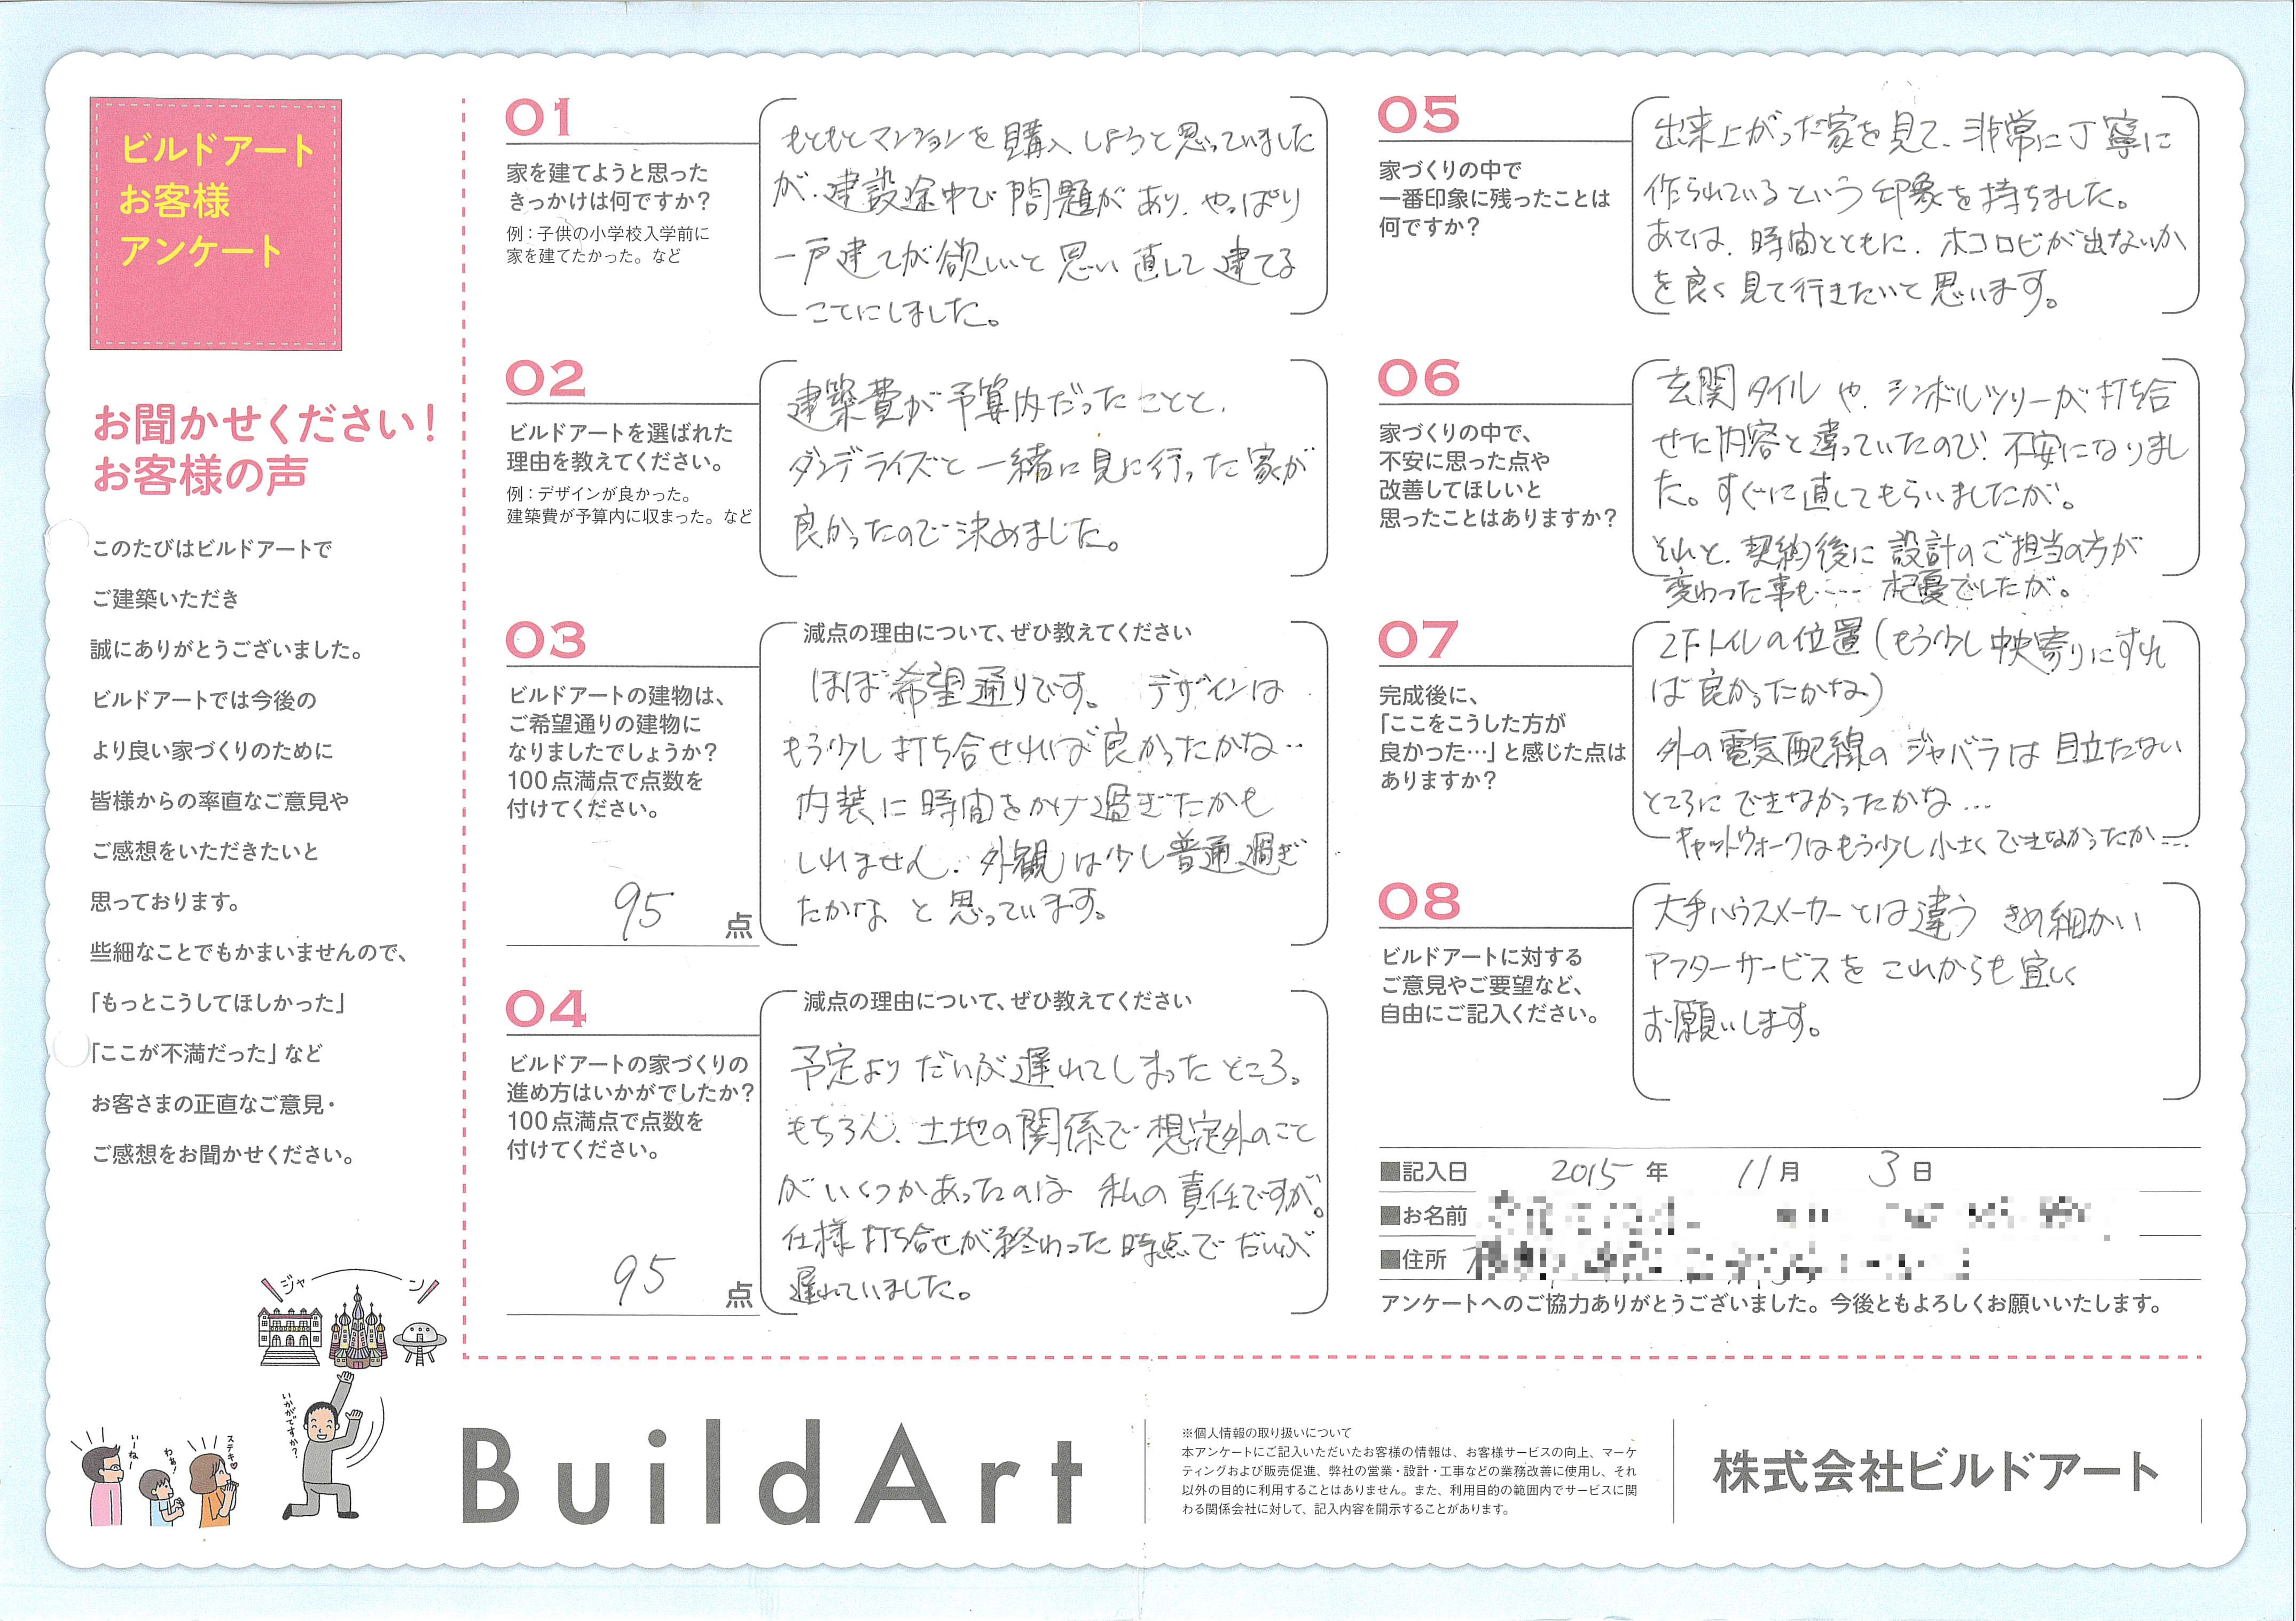 ビルドアート
お客様
アンケート
お聞かせください!
お客様の声
このたびはビルドアートで
ご建築いただき
誠にありがとうございました。
ビルドアートでは今後の
より良い家づくりのために
皆様からの率直なご意見や
ご感想をいただきたいと
思っております。
些細なことでもかまいませんので、
「もっとこうしてほしかった」
「ここが不満だった」など
お客さまの正直なご意見・
ご感想をお聞かせください。
ジャ ン
いかがですか?
いーねー
わぁ!
ステキ♡
01
家を建てようと思った
きっかけは何ですか?
例:子供の小学校入学前に
家を建てたかった。など
もともとマンションを購入しようと思っていました
が、建設途中で問題があり、やっぱり
一戸建てが欲しいと思い直して建てる
ことにしました。
02
ビルドアートを選ばれた
理由を教えてください。
例:デザインが良かった。
建築費が予算内に収まった。など
建築費が予算内だったことと、
ダンデライズと一緒に見に行った家が
良かったので決めました。
03
ビルドアートの建物は、
ご希望通りの建物に
なりましたでしょうか?
100点満点で点数を
付けてください。
95 点
減点の理由について、ぜひ教えてください
ほぼ希望通りです。 デザインは
もう少し打ち合せれば良かったかな‥
内装に時間をかけ過ぎたかも
しれません。外観は少し普通過ぎ
たかな と思っています。
04
ビルドアートの家づくりの
進め方はいかがでしたか?
100点満点で点数を
付けてください。
95 点
減点の理由について、ぜひ教えてください
予定よりだいぶ遅れてしまったところ。
もちろん、土地の関係で想定外のこと
がいくつかあったのは 私の責任ですが。
仕様打ち合せが終わった時点でだいぶ
遅れていました。
05
家づくりの中で
一番印象に残ったことは
何ですか?
出来上がった家を見て、非常に丁寧に
作られているという印象を持ちました。
あとは、時間とともに、ホコロビが出ないか
を良く見て行きたいと思います。
06
家づくりの中で、
不安に思った点や
改善してほしいと
思ったことはありますか?
玄関タイルや、シンボルツリーが打ち合
せた内容と違っていたので、不安になりまし
た。すぐに直してもらいましたが。
それと、契約後に設計のご担当の方が
変わった事も‥‥ 杞憂でしたが。
07
完成後に、
「ここをこうした方が
良かった…」と感じた点は
ありますか?
2Fトイレの位置(もう少し中央寄りにすれ
ば良かったかな)
外の電気配線のジャバラは目立たない
ところにできなかったかな…
キャットウォークはもう少し小さくできなかったか…
08
ビルドアートに対する
ご意見やご要望など、
自由にご記入ください。
大手ハウスメーカーとは違う きめ細かい
アフターサービスをこれからも宜しく
お願いします。
■記入日 2015年 11月 3日
■お名前
■住所
アンケートへのご協力ありがとうございました。今後ともよろしくお願いいたします。
BuildArt
※個人情報の取り扱いについて
本アンケートにご記入いただいたお客様の情報は、お客様サービスの向上、マーケ
ティングおよび販売促進、弊社の営業・設計・工事などの業務改善に使用し、それ
以外の目的に利用することはありません。また、利用目的の範囲内でサービスに関
わる関係会社に対して、記入内容を開示することがあります。
株式会社ビルドアート